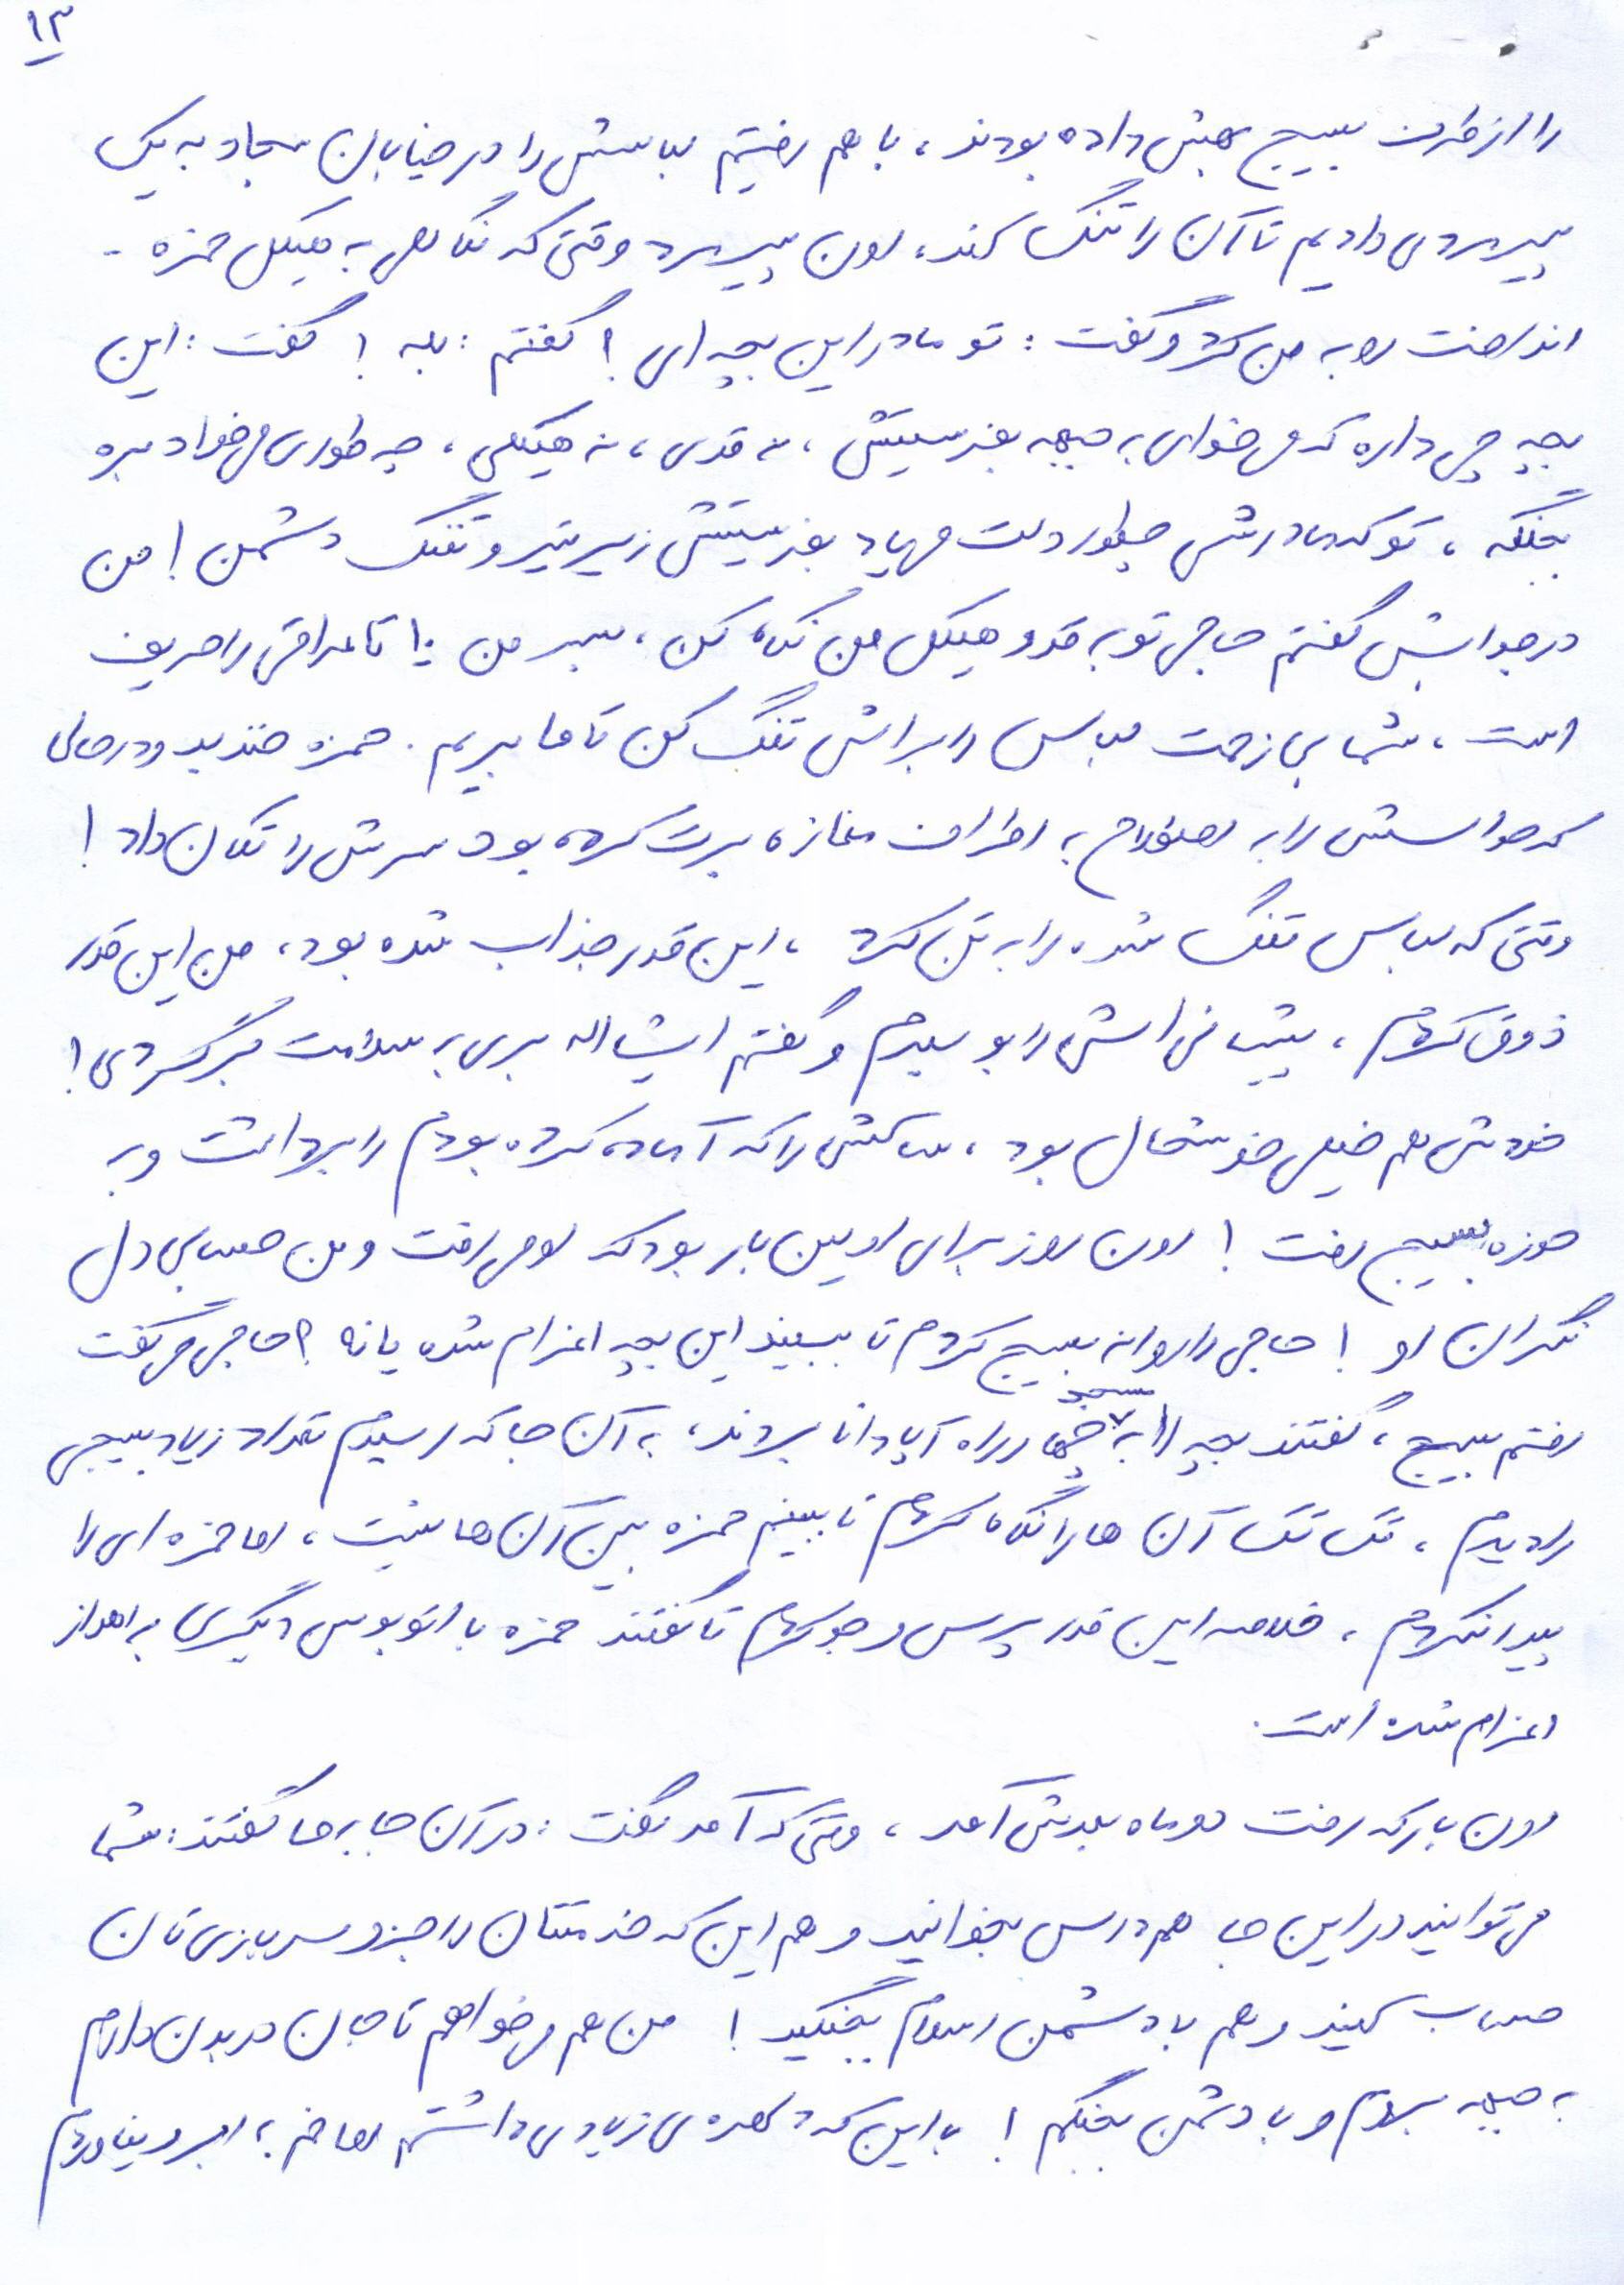 ۱۳
را از طرف بسیج بهش داده بودند، با هم رفتیم لباسش را در خیابان سجاد به یک
پیرمردی دادیم تا آن را تنگ کند، اون پیرمرد وقتی که نگاهی به هیکل حمزه -
انداخت رو به من کرد و گفت: تو مادر این بچه ای؟ گفتم: بله! گفت: این
بچه چی داره که می خوای به جبهه بفرستیش، نه قدی، نه هیکلی، چه طوری می خواد بره
بجنگه، تو که مادرش چطور دلت می یاد بفرستیش زیر تیر و تفنگ دشمن! من
در جوابش گفتم حاجی تو به قد و هیکل من نگاه نکن، پسر من ۱۰ تا عراقی را حریف
است، شما بی زحمت لباس را براش تنگ کن تا ما بریم. حمزه خندید و در حالی
که حواسش را به اصطلاح به اطراف مغازه پرت کرده بود سرش را تکان داد!
وقتی که لباس تنگ شده را به تن کرد، این قدر جذاب شده بود، من این قدر
ذوق کردم، پیشانی اش را بوسیدم و گفتم ایشااله بری به سلامت برگردی!
خودش هم خیلی خوشحال بود، ساکش را که آماده کرده بودم را برداشت و به
حوزه بسیج رفت! اون روز برای اولین بار بود که او می رفت و من حسابی دل
نگران او! حاجی را روانه بسیج کردم تا ببیند این بچه اعزام شده یا نه؟ حاجی می گفت
رفتم بسیج، گفتند بچه را به مسجد چهارراه آپادانا بردند، به آن جا که رسیدم تعداد زیاد بسیجی
را دیدم، تک تک آن ها را نگاه کردم تا ببینم حمزه بین آن ها نیست، اما حمزه ای را
پیدا نکردم، خلاصه این قدر پرس و جو کردم تا گفتند حمزه با اتوبوس دیگری به اهواز
اعزام شده است.
اون بار که رفت دو ماه بعدش آمد، وقتی که آمد گفت: در آن جا به ما گفتند: شما
می توانید در این جا هم درس بخوانید و هم این که خدمتتان را جزو سربازی تان
حساب کنید و هم با دشمن اسلام بجنگید! من هم می خواهم تا جان در بدن دارم
به جبهه بروم و با دشمن بجنگم! با این که دلهره ی زیادی داشتم اما خم به ابرو نیاوردم